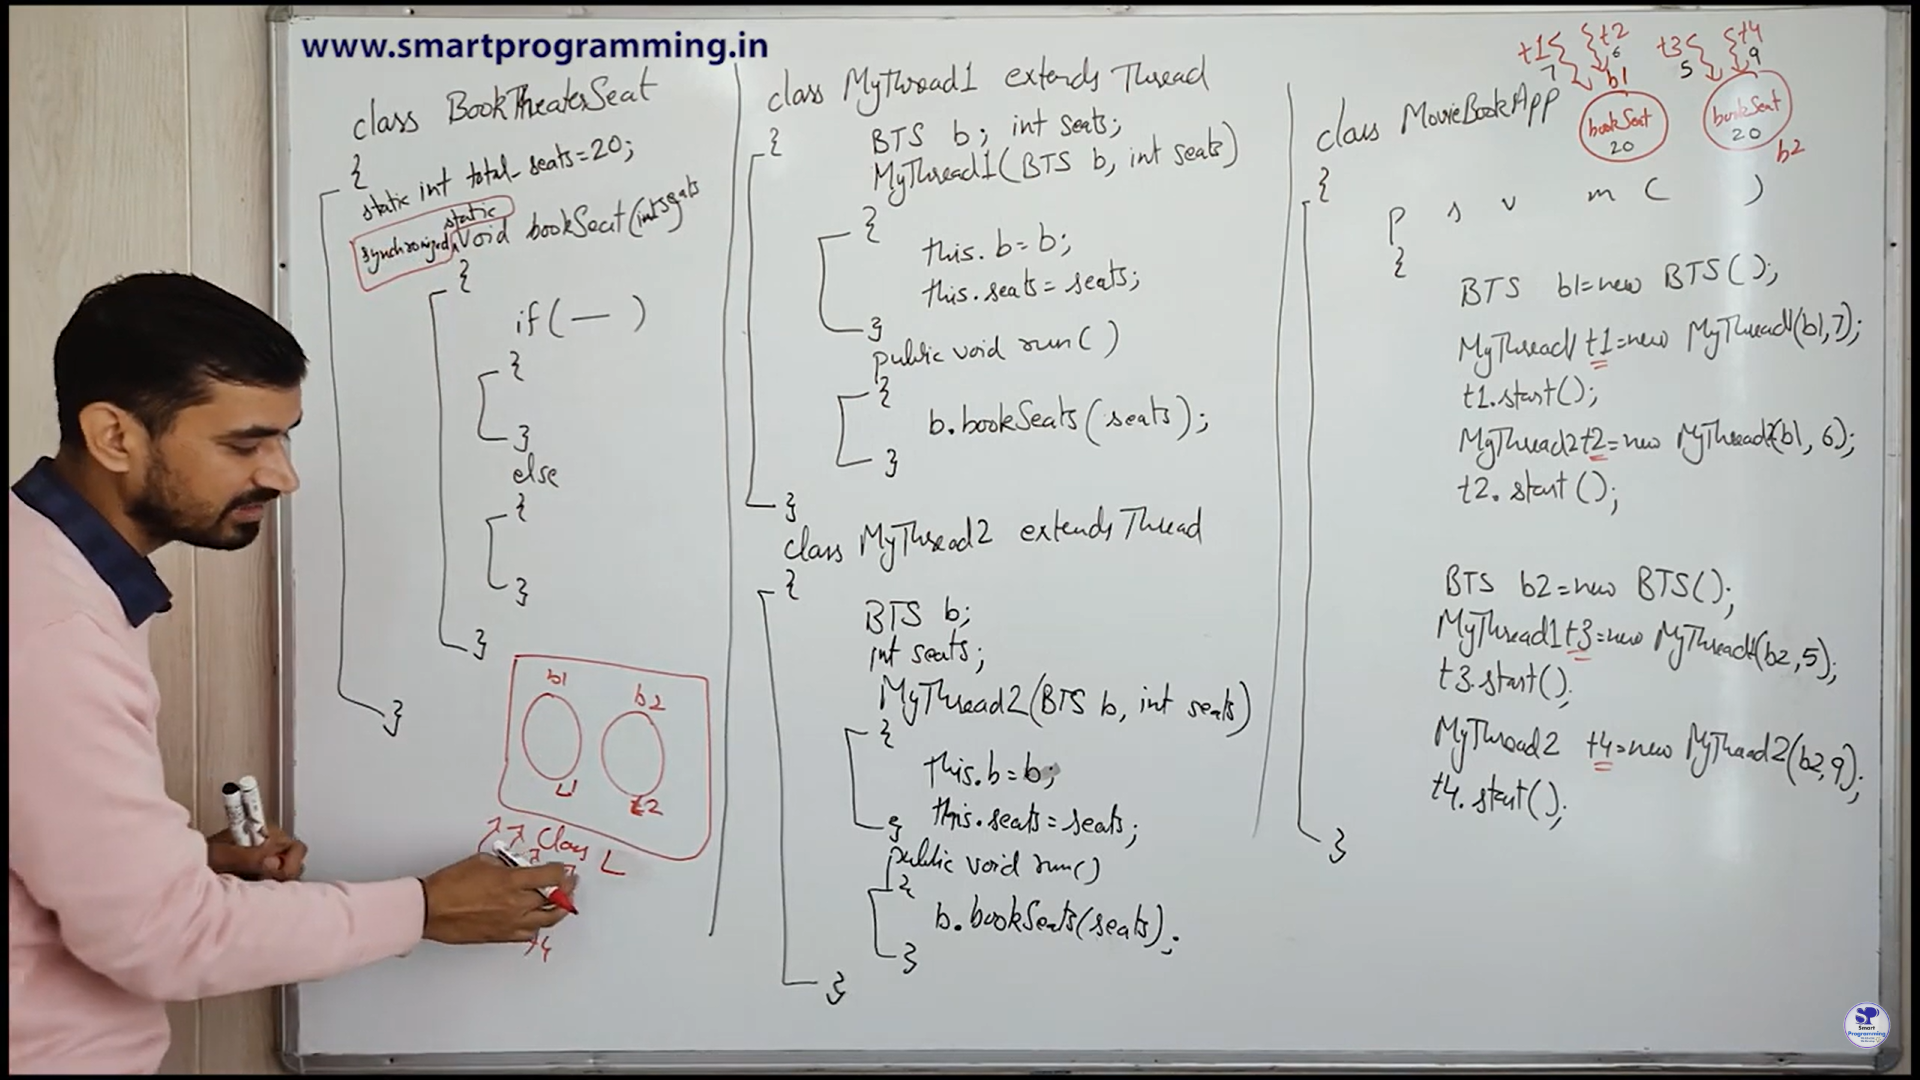 www.smartprogramming.in
class BookTheaterSeat
{
static int total_seats=20;
static
synchronized void bookSeat(int seats)
{
if( — )
{
}
else
{
}
}
}
b1
b2
L1
L2
Class L
t4
class MyThread1 extends Thread
{
BTS b; int seats;
MyThread1(BTS b, int seats)
{
this.b=b;
this.seats=seats;
}
public void run()
{
b.bookSeats(seats);
}
}
class MyThread2 extends Thread
{
BTS b;
int seats;
MyThread2(BTS b, int seats)
{
this.b=b;
this.seats=seats;
}
public void run()
{
b.bookSeats(seats);
}
}
t1 t2 t3 t4
7 6 5 9
b1
bookSeat
20
bookSeat
20
b2
class MovieBookApp
{
p s v m ( )
{
BTS b1=new BTS();
MyThread1 t1=new MyThread1(b1,7);
t1.start();
MyThread2 t2=new MyThread2(b1, 6);
t2.start();
BTS b2=new BTS();
MyThread1 t3=new MyThread1(b2,5);
t3.start();
MyThread2 t4=new MyThread2(b2,9);
t4.start();
}
SP
Smart
Programming